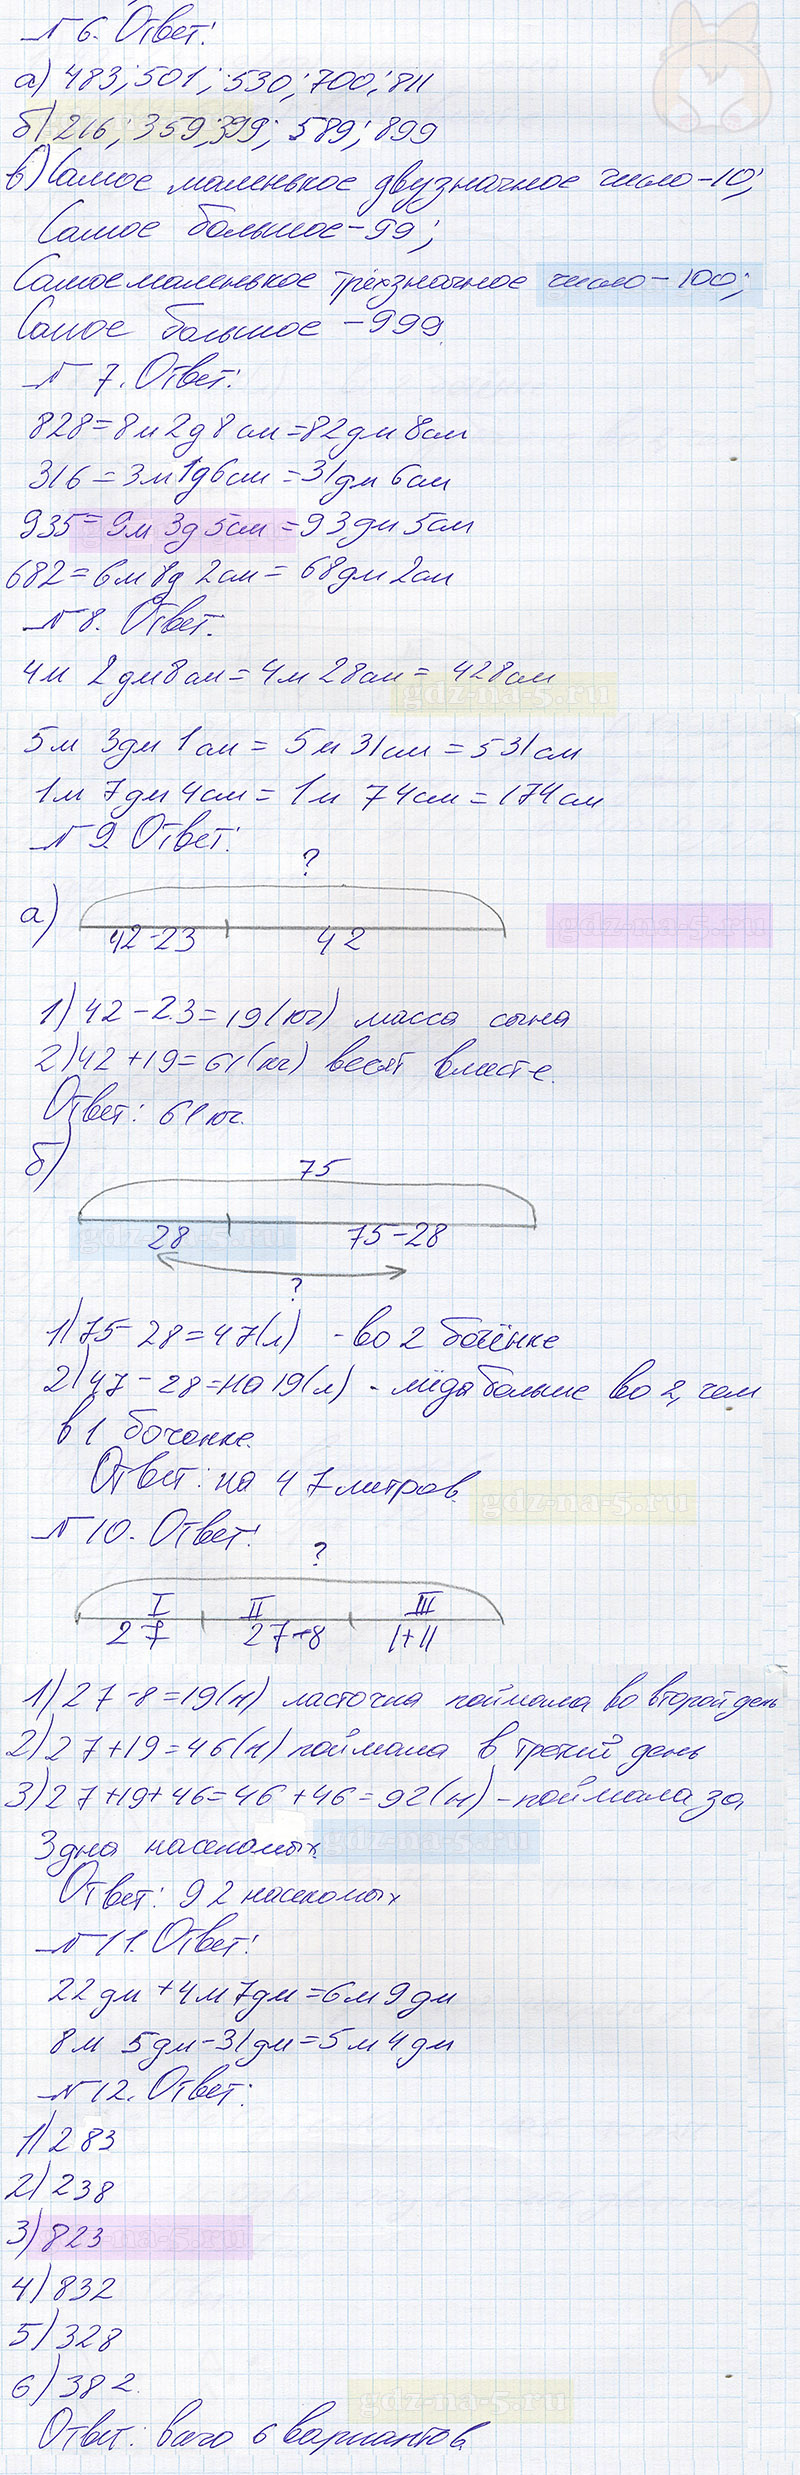 № 6. Ответ:
а) 483; 501; 530; 700; 811
б) 216; 359; 399; 589; 899
в) Самое маленькое двузначное число - 10;
Самое большое - 99;
Самое маленькое трёхзначное число - 100;
Самое большое - 999
№ 7. Ответ:
828 = 8м 2д 8см = 82дм 8см
316 = 3м 1д 6см = 31дм 6см
935 = 9м 3д 5см = 93дм 5см
682 = 6м 8д 2см = 68дм 2см
№ 8. Ответ.
4м 2дм 8см = 4м 28см = 428см
gdz-na-5.ru
5м 3дм 1см = 5м 31см = 531см
1м 7дм 4см = 1м 74см = 174см
№ 9 Ответ:
?
а)
42-23 42
gdz-na-5.ru
1) 42 - 23 = 19 (кг) масса сына
2) 42 + 19 = 61 (кг) весят вместе.
Ответ: 61 кг.
б)
75
28 75-28
?
1) 75 - 28 = 47 (л) - во 2 бочёнке
2) 47 - 28 = на 19 (л) - мёда больше во 2, чем
в 1 бочонке.
Ответ: на 47 литров.
gdz-na-5.ru
№ 10. Ответ:
?
I II III
27 27-8 I+II
1) 27 - 8 = 19 (н) ласточка поймала во второй день
2) 27 + 19 = 46 (н) поймала в третий день
3) 27 + 19 + 46 = 46 + 46 = 92 (н) - поймала за
3 дня насекомых.
gdz-na-5.ru
Ответ: 92 насекомых
№ 11. Ответ:
22 дм + 4м 7дм = 6м 9дм
8м 5дм - 31дм = 5м 4дм
№ 12. Ответ:
1) 283
2) 238
3) 823
4) 832
5) 328
6) 382.
gdz-na-5.ru
Ответ: всего 6 вариантов.